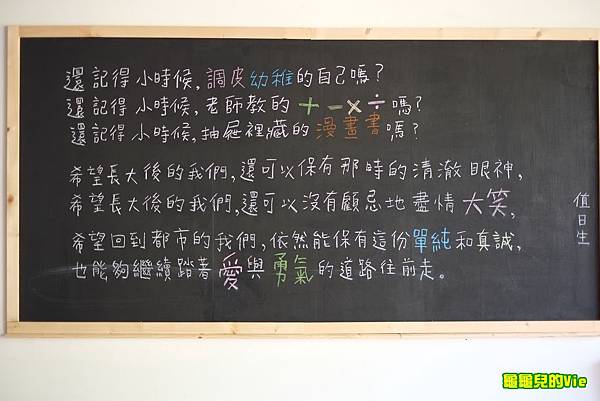 還記得小時候,調皮幼稚的自己嗎?
還記得小時候,老師教的+-×÷嗎?
還記得小時候,抽屜裡藏的漫畫書嗎?
希望長大後的我們,還可以保有那時的清澈眼神,
希望長大後的我們,還可以沒有顧忌地盡情大笑,
希望回到都市的我們,依然能保有這份單純和真誠,
也能夠繼續踏著愛與勇氣的道路往前走。
值日生
龜龜兒的Vie